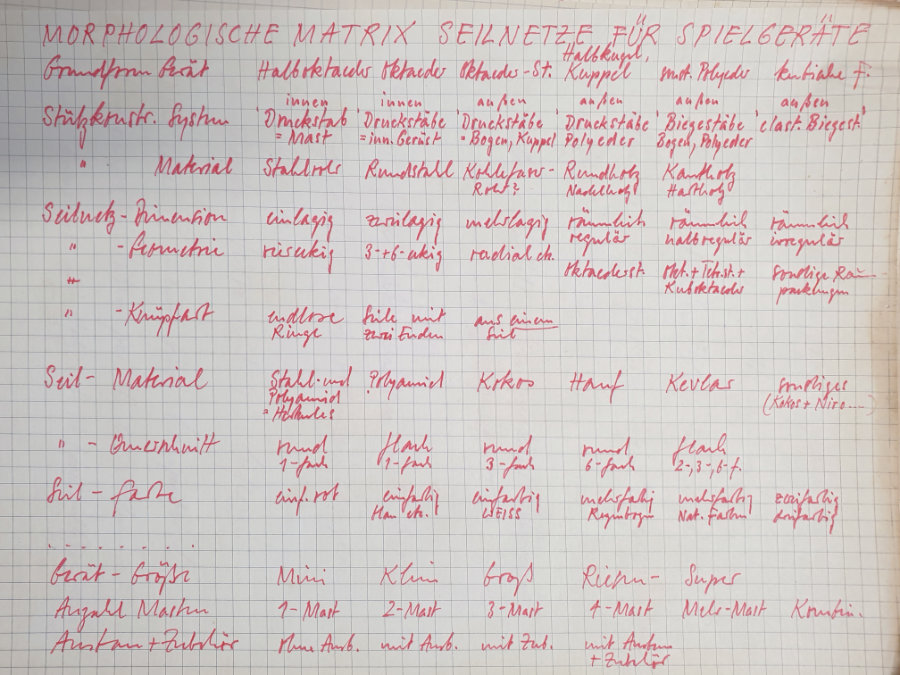 MORPHOLOGISCHE MATRIX SEILNETZE FÜR SPIELGERÄTE
Grundform Gerät Halboktaeder Oktaeder Oktaeder-St. Halbkugel, Kuppel sonst. Polyeder kubische F.
innen innen außen außen außen außen
Stützkonstr. System Druckstab Druckstäbe Druckstäbe Druckstäbe Biegestäbe elast. Biegest.
= Mast = inn. Gerüst = Bogen, Kuppel Polyeder Bogen, Polyeder
" Material Stahlrohr Rundstahl Kohlefaser- Rundholz Kantholz
Rohr? Nadelholz Hartholz
Seilnetz-Dimension einlagig zweilagig mehrlagig räumlich räumlich räumlich
regulär halbregulär irregulär
" -Geometrie viereckig 3-+6-eckig radial etc.
Oktaederst. Okt.+Tetr.st.+ sonstige Raum-
Kuboktaeder packungen
" -Knüpfart endlose Seile mit aus einem
Ringe zwei Enden Seil
Seil-Material Stahl-und Polyamid Kokos Hanf Kevlar sonstiges
Polyamid (Kokos + Niro....)
= Herkules
" -Querschnitt rund flach rund rund flach
1-fach 1-fach 3-fach 6-fach 2-,3-,6-f.
Seil-Farbe einf. rot einfarbig einfarbig mehrfarbig mehrfarbig zweifarbig
blau etc. WEISS Regenbogen Nat. Farben dreifarbig
. . . . . . . .
Gerät-Größe Mini Klein Groß Riesen- Super
Anzahl Masten 1-Mast 2-Mast 3-Mast 4-Mast Mehr-Mast Kombin.
Ausbau+Zubehör ohne Ausb. mit Ausb. mit Zub. mit Ausbau
+ Zubehör